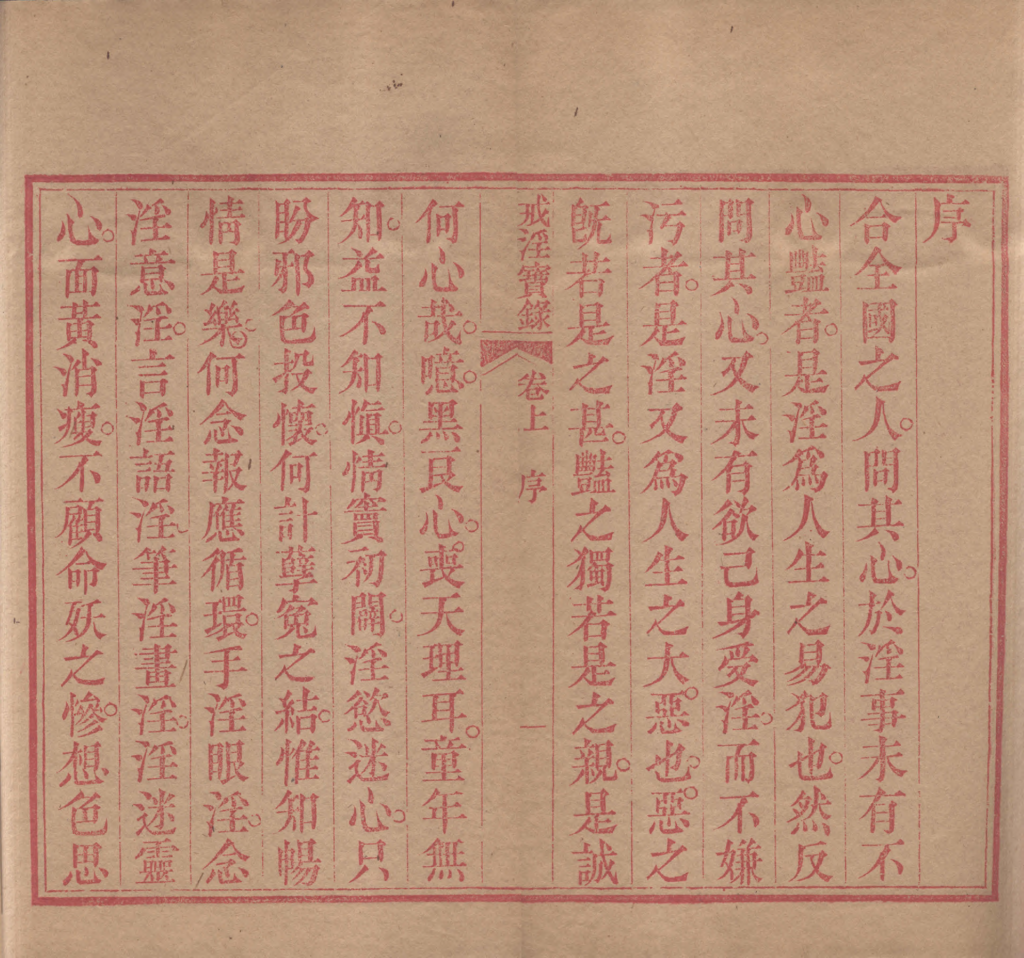 序
合全國之人。問其心。於淫事未有不
心豔者。是淫爲人生之易犯也。然反
問其心。又未有欲己身受淫。而不嫌
污者。是淫又爲人生之大惡也。惡之
旣若是之甚。豔之獨若是之親。是誠
戒淫寶錄 卷上 序 一
何心哉。噫。黑艮心。喪天理耳。童年無
知。益不知愼。情竇初闢。淫慾迷心。只
盼邪色投懷。何計孽冤之結。惟知暢
情是樂。何念報應循環。手淫眼淫。念
淫意淫。言淫語淫。筆淫畫淫。淫迷靈
心。面黃消瘦。不顧命殀之慘。想色思